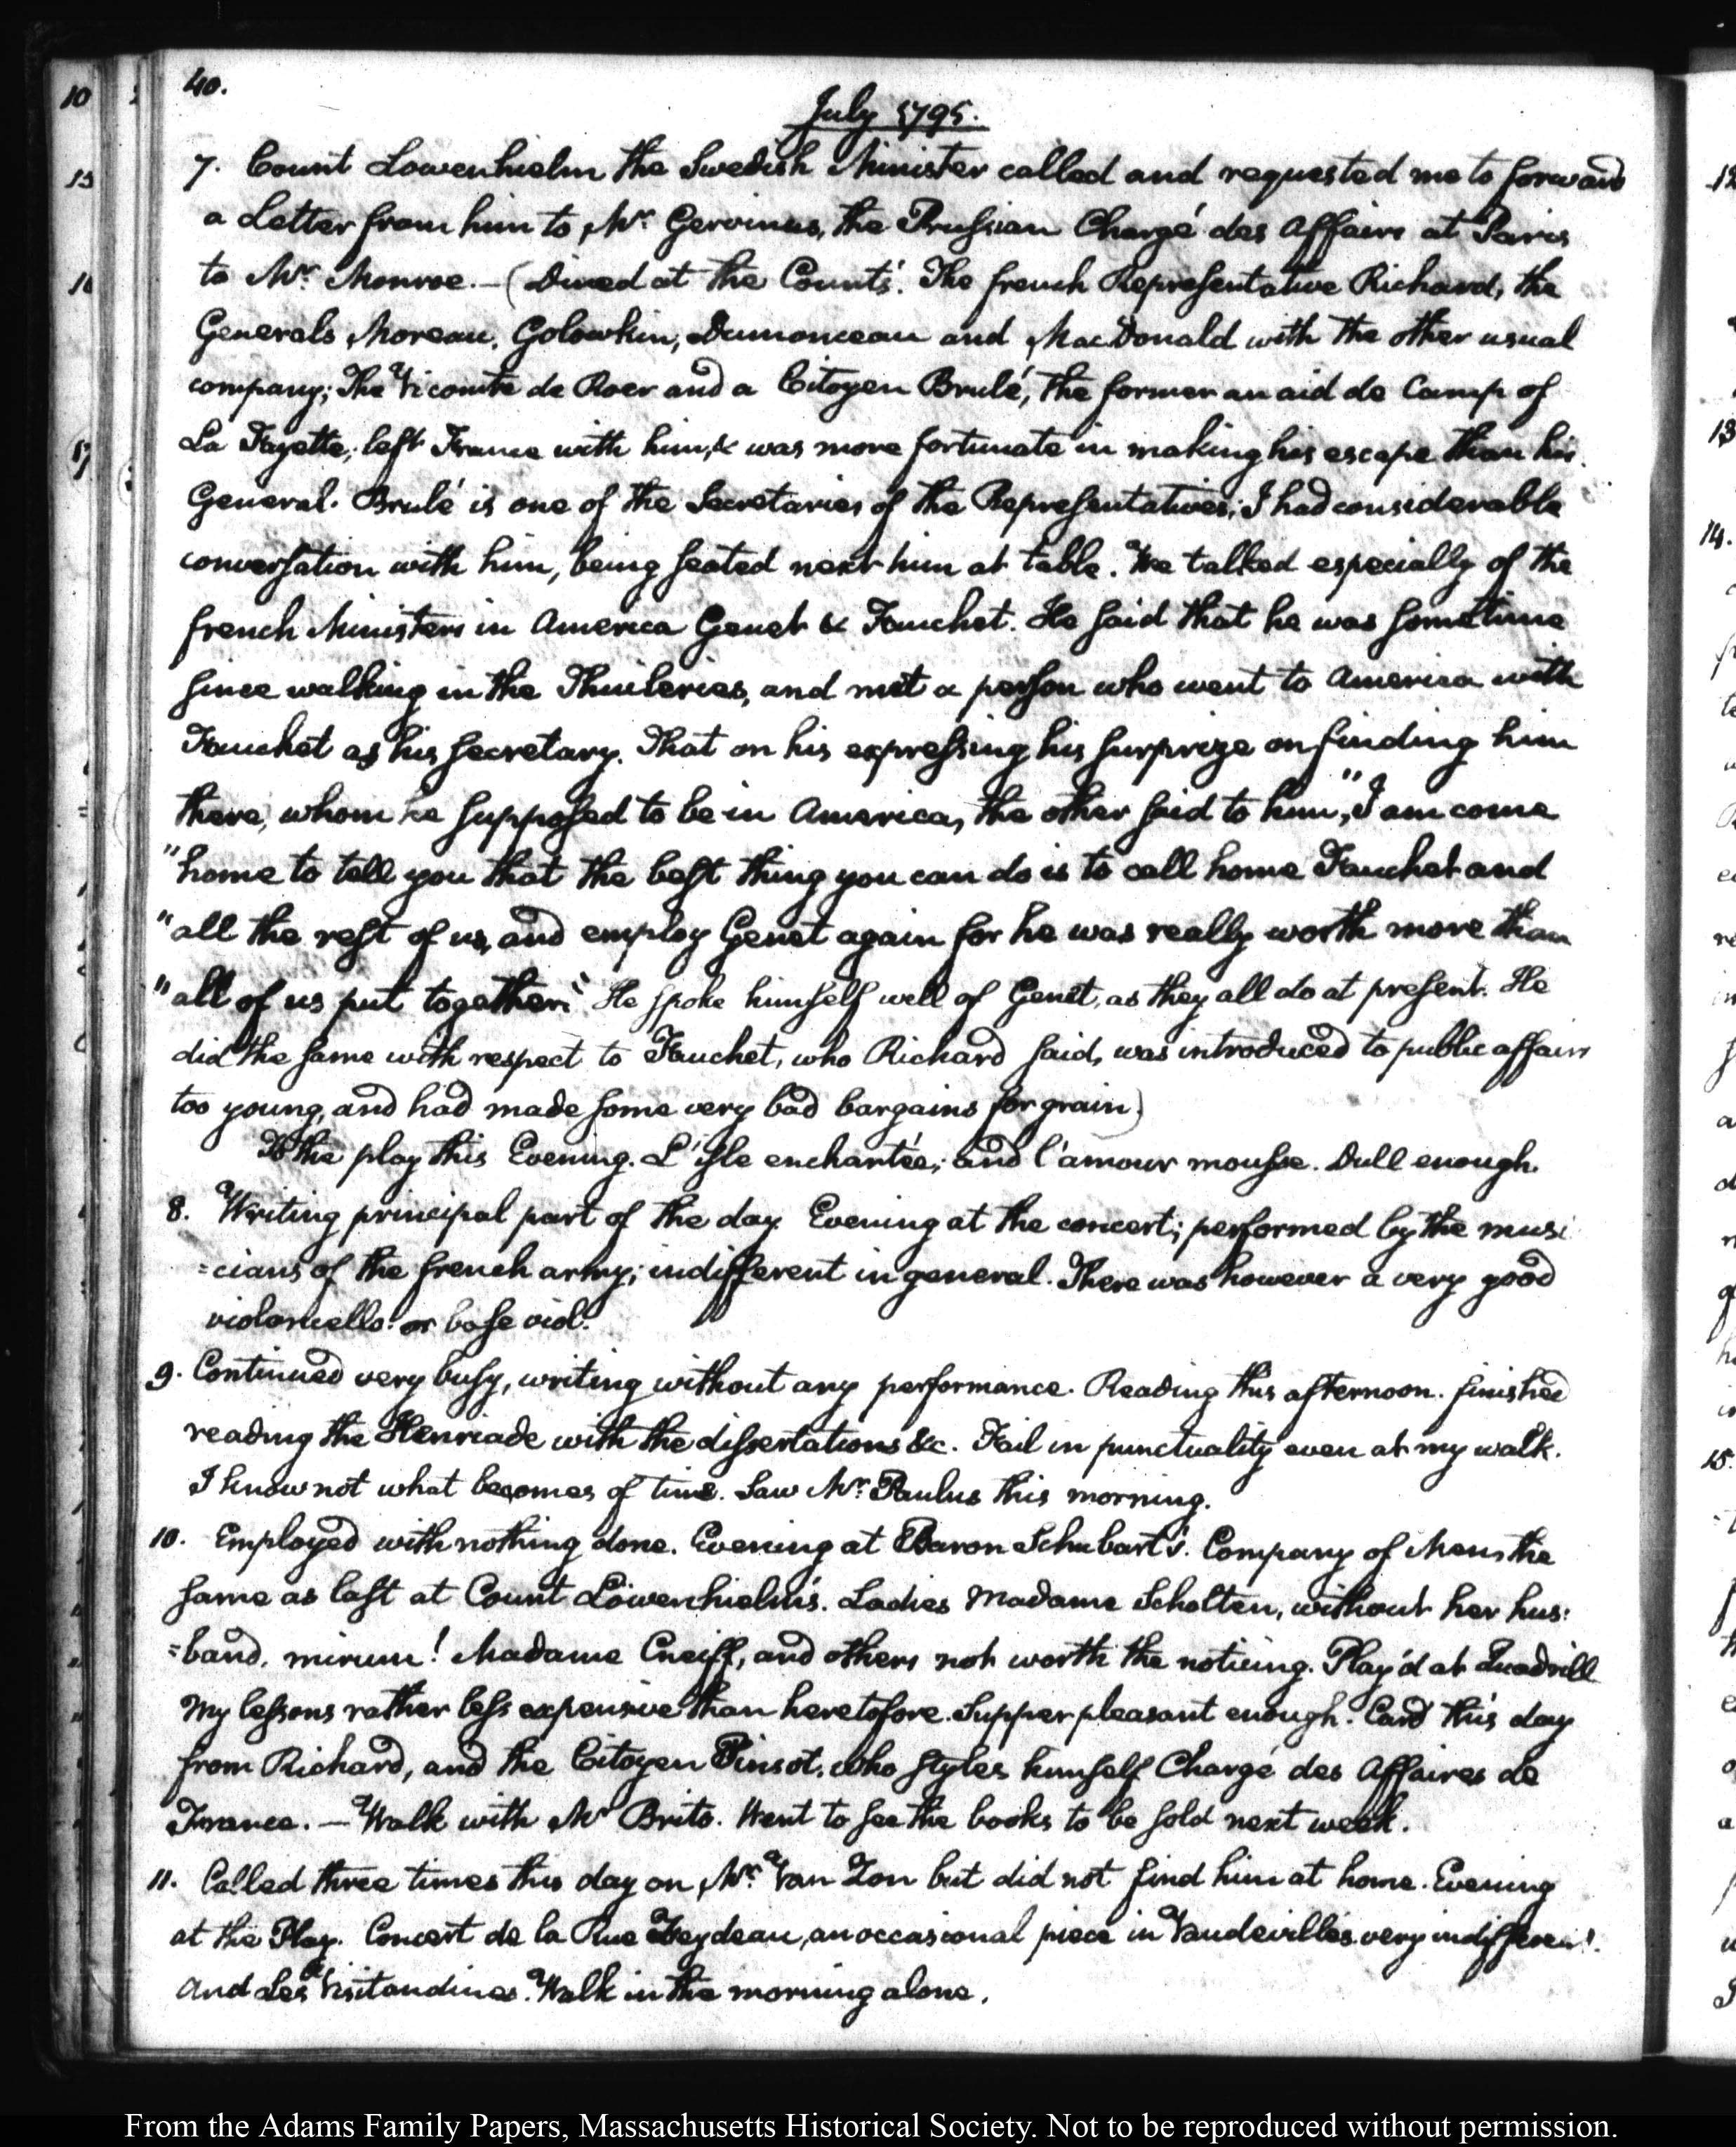 40.
July 1795.
7. Count Lowenhielm the Swedish Minister called and requested me to forward
a Letter from him to Mr. Gervinus, the Prussian Chargé des Affairs at Paris
to Mr. Monroe. — (Dined at the Counts'. The french Representative Richard, the
Generals Moreau, Golowkin, Dumonceau and MacDonald with the other usual
company; The Vicomte de Roer and a Citoyen Brulé, the former an aid de Camp of
La Fayette, left France with him, & was more fortunate in making his escape than his
General. Brulé is one of the Secretaries of the Representatives; I had considerable
conversation with him, being seated next him at table. We talked especially of the
french Ministers in America Genet & Fauchet. He said that he was sometime
since walking in the Thuileries, and met a person who went to America with
Fauchet as his secretary. That on his expressing his surprize on finding him
there, whom he supposed to be in America, the other said to him, "I am come
"home to tell you that the best thing you can do is to call home Fauchet and
"all the rest of us, and employ Genet again for he was really worth more than
"all of us put together." He spoke himself well of Genet, as they all do at present. He
did the same with respect to Fauchet, who Richard said, was introduced to public affairs
too young, and had made some very bad bargains for grain)
To the play this Evening. L'isle enchantée; and l'amour mousse. Dull enough.
8. Writing principal part of the day. Evening at the concert; performed by the musi
=cians of the french army; indifferent in general. There was however a very good
violoncello: or base viol.
9. Continued very busy, writing without any performance. Reading this afternoon. finished
reading the Henriade with the dissertations &c. Fail in punctuality even at my walk.
I know not what becomes of time. Saw Mr. Paulus this morning.
10. Employed with nothing done. Evening at Baron Schubart's. Company of Men, the
same as last at Count Löwenhielm's. Ladies Madame Scholten, without her hus:
=band, mirum! Madame Cneiff, and others not worth the noticing. Play'd at Quadrill
My lessons rather less expensive than heretofore. Supper pleasant enough. Card this day
from Richard, and the Citoyen Pinsot, who styles himself Chargé des Affaires de
France. — Walk with Mr Brito. Went to see the books to be sold next week.
11. Called three times this day on Mr. Van Zon but did not find him at home. Evening
at the Play. Concert de la Rue Feydeau, an occasional piece in Vaudevilles very indifferent.
And Les Visitandines. Walk in the morning alone.
From the Adams Family Papers, Massachusetts Historical Society. Not to be reproduced without permission.